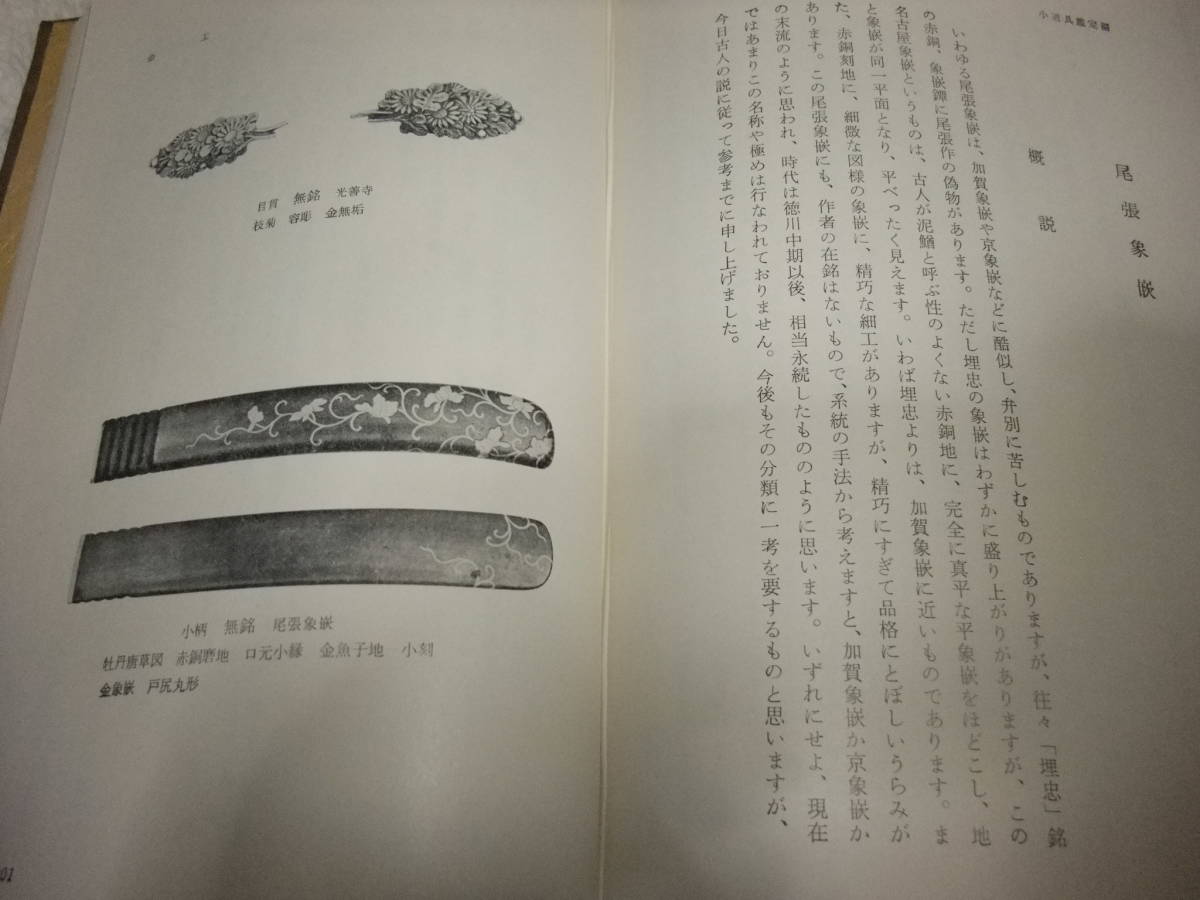 小道具鑑定編
尾張象嵌
概説
いわゆる尾張象嵌は、加賀象嵌や京象嵌などに酷似し、弁別に苦しむものでありますが、往々「埋忠」銘
の赤銅、象嵌鐔に尾張作の偽物があります。ただし埋忠の象嵌はわずかに盛り上がりがありますが、この
名古屋象嵌というものは、古人が泥鰌と呼ぶ性のよくない赤銅地に、完全に真平な平象嵌をほどこし、地
と象嵌が同一平面となり、平べったく見えます。いわば埋忠よりは、加賀象嵌に近いものであります。ま
た、赤銅刻地に、細微な図様の象嵌に、精巧な細工がありますが、精巧にすぎて品格にとぼしいうらみが
あります。この尾張象嵌にも、作者の在銘はないもので、系統の手法から考えますと、加賀象嵌か京象嵌か
の末流のように思われ、時代は徳川中期以後、相当永続したもののように思います。いずれにせよ、現在
ではあまりこの名称や極めは行なわれておりません。今後もその分類に一考を要するものと思いますが、
今日古人の説に従って参考までに申し上げました。
目貫 無銘 光善寺
枝菊 容彫 金無垢
小柄 無銘 尾張象嵌
牡丹唐草図 赤銅磨地 口元小縁 金魚子地 小刻
金象嵌 戸尻丸形
01